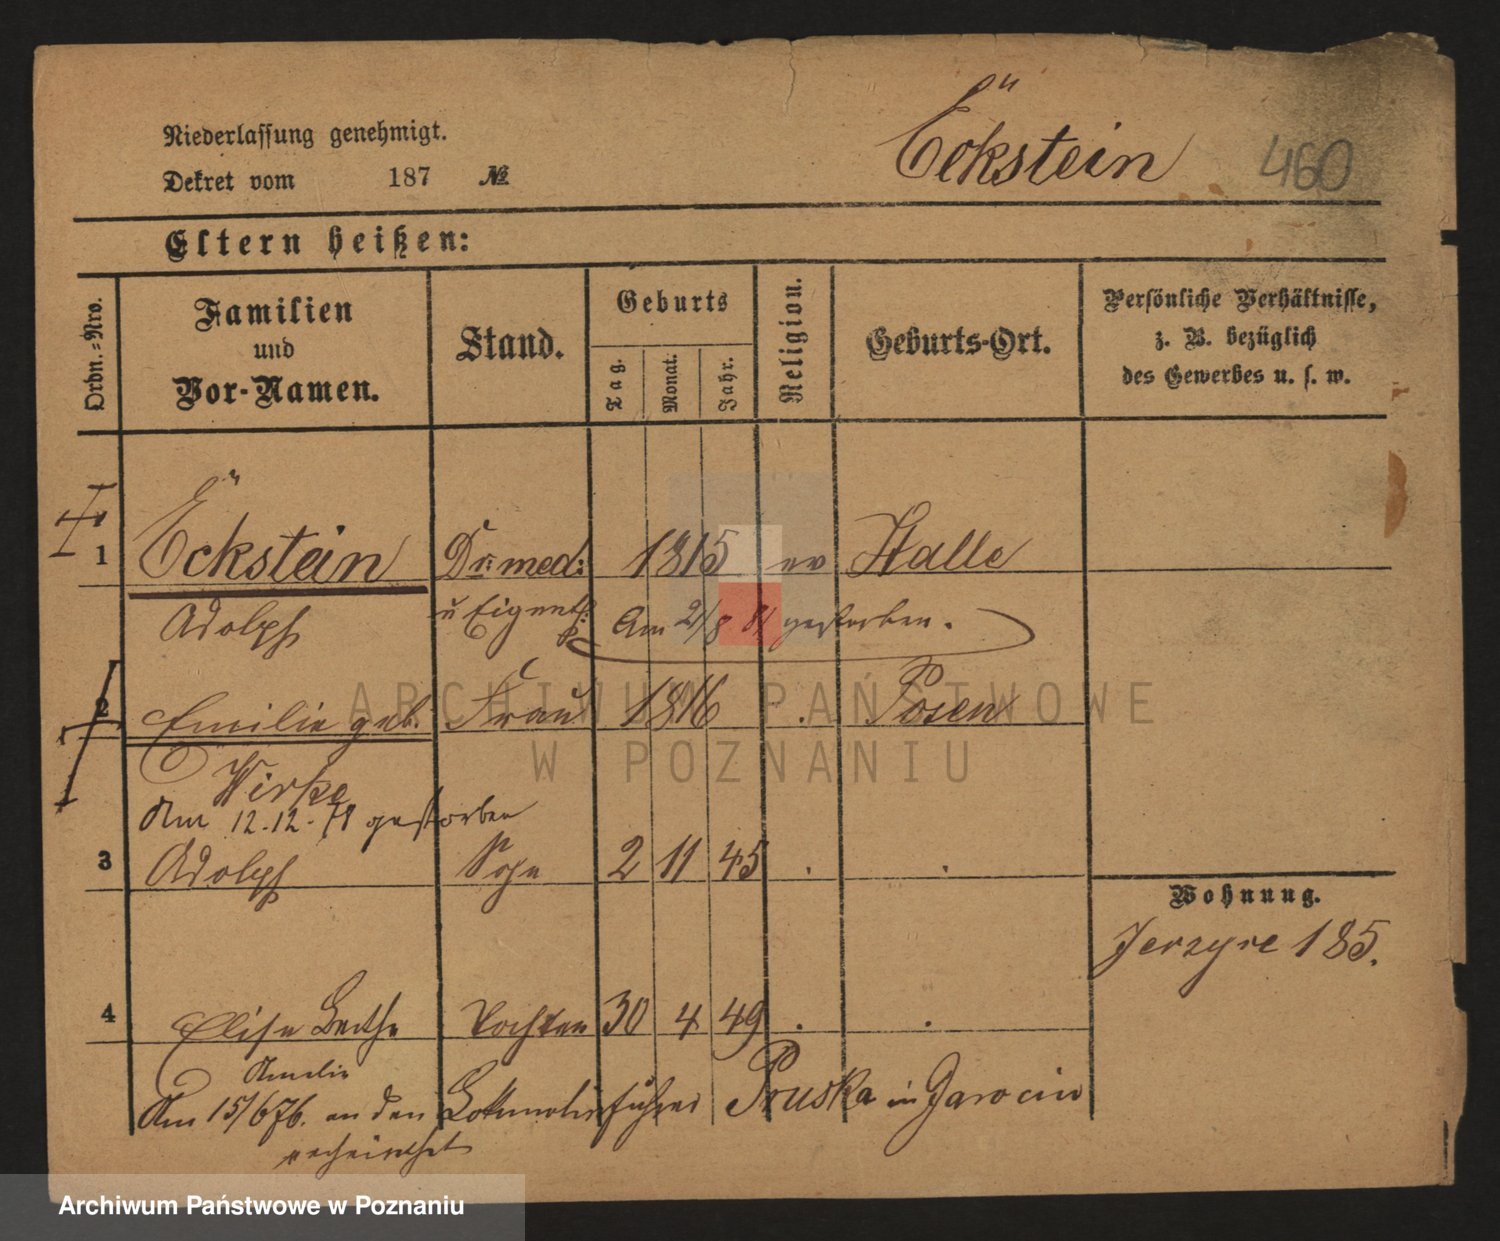 Niederlassung genehmigt.
Dekret vom 187 №
Eckstein 460
Eltern heißen:
Ordn.-Nro.
Familien
und
Vor-Namen.
Stand.
Geburts
Tag.
Monat.
Jahr.
Religion.
Geburts-Ort.
Persönliche Verhältnisse,
z. B. bezüglich
des Gewerbes u. s. w.
1 Eckstein Dr: med: 1815 ev Halle
Adolph u Eigenth. Am 2/8 81 gestorben.
2 Emilie geb. Frau 1816 . Posen
Wirke
Am 12.12.78 gestorben
3 Adolph Sohn 2 11 45 . .
Wohnung.
Jerzyce 185.
4 Elise Berthe Tochter 30 4 49 . .
Amelie
Am 15/6 76. an den Lokomotivführer Pruska in Jarocin
verheirathet
ARCHIWUM PAŃSTWOWE
W POZNANIU
Archiwum Państwowe w Poznaniu